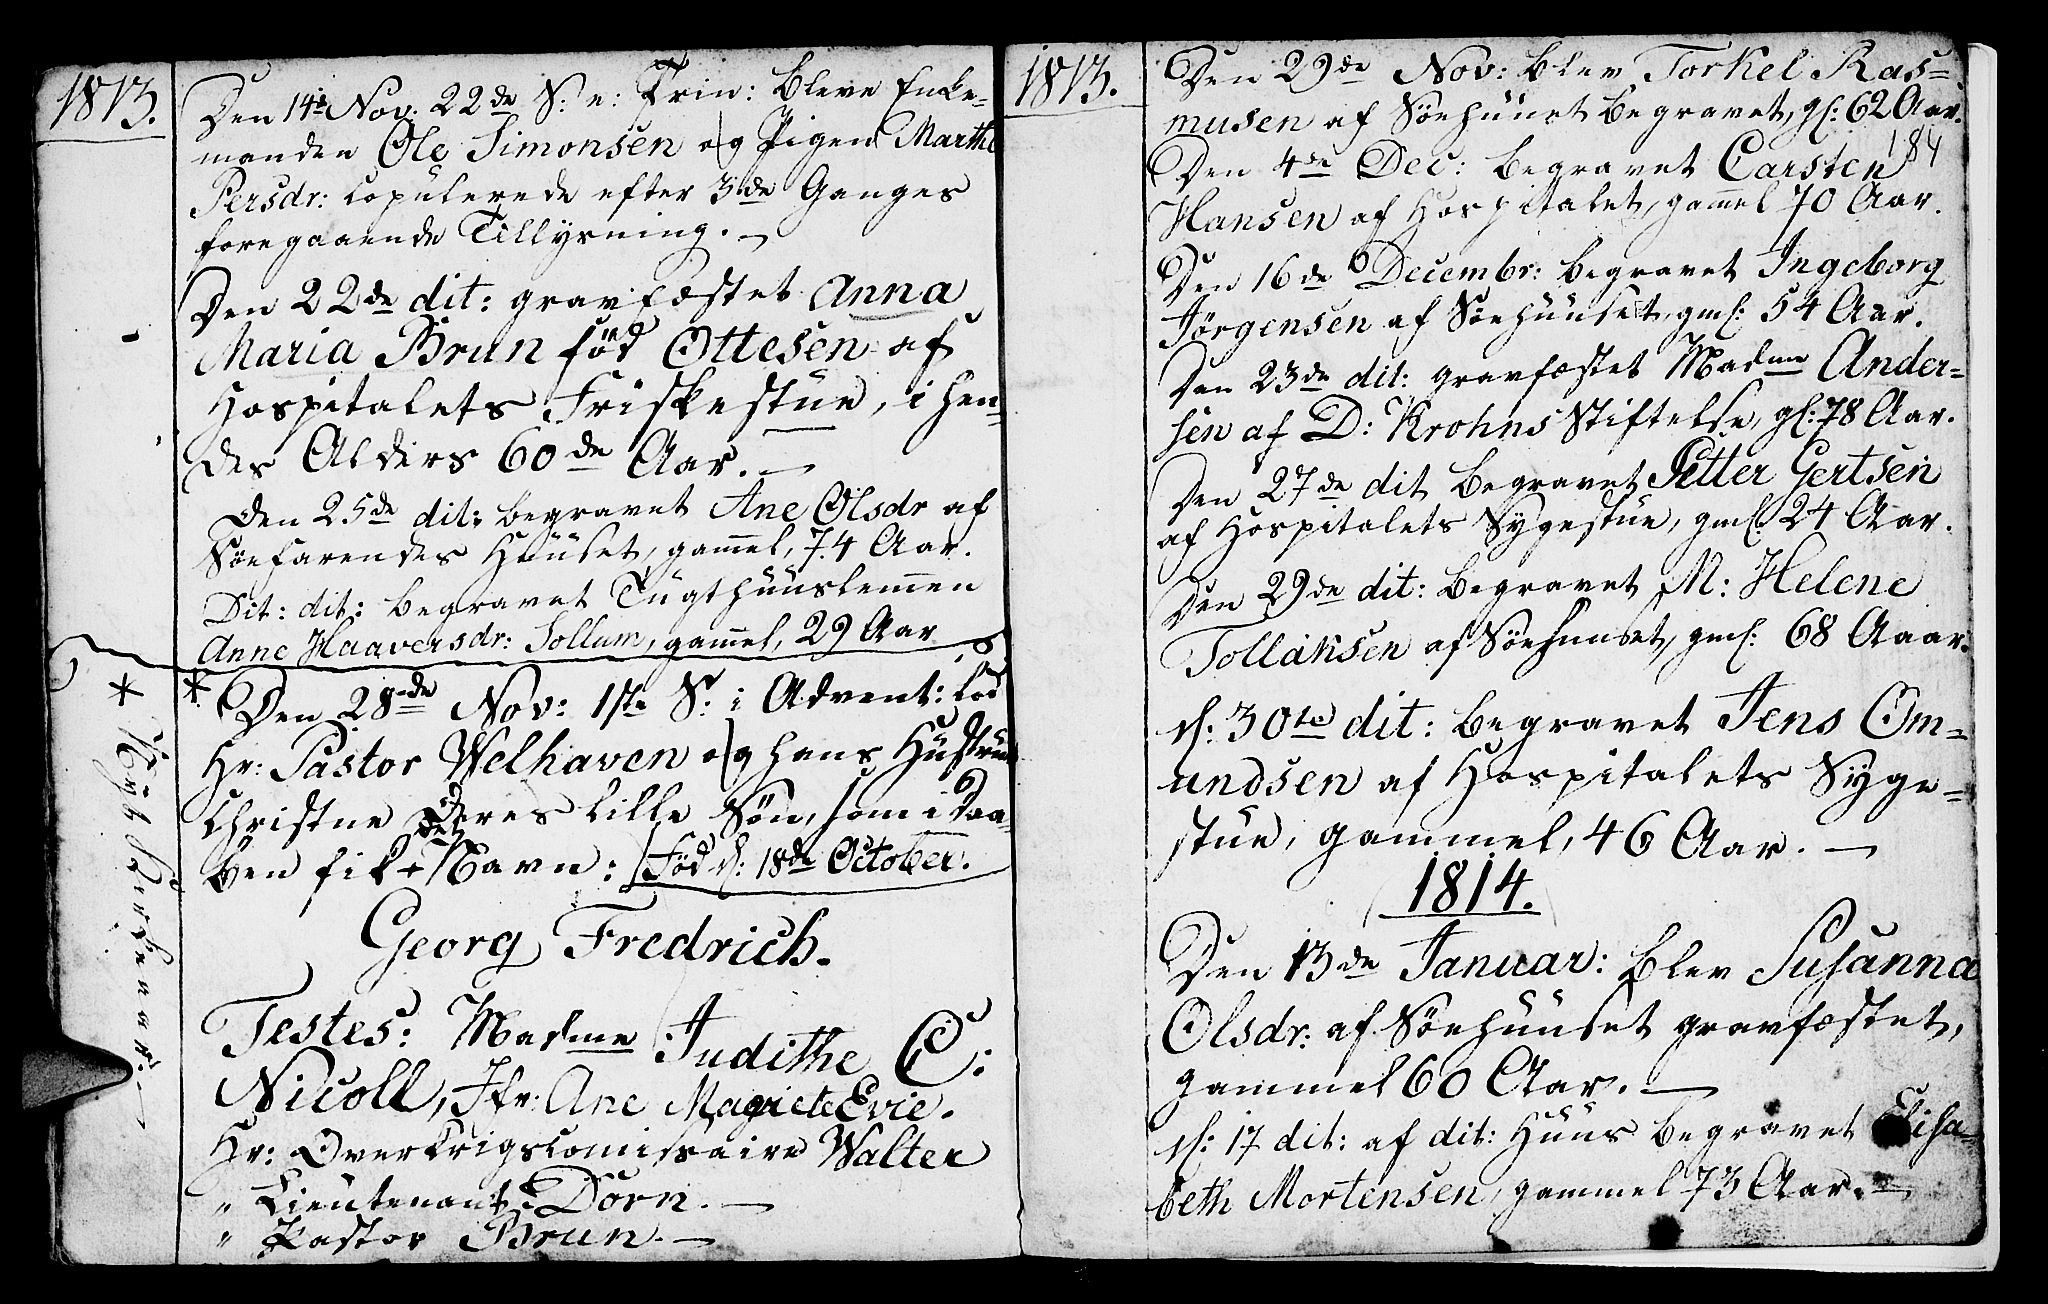 1813.
Den 14de Nov: 22de S: e: Trin: bleve Enke-
manden Ole Simonsen og Pigen Marthe
Persdr: copulerede efter 3de Ganges
foregaaende Tillysning. —
Den 22de dit: gravfæstet Anna
Maria Brun föd Ottesen af
Hospitalets Friskestue, i hen-
des Alders 60de Aar. —
Den 25de dit: begravet Ane Olsdr af
Söefarendes Huuset, gam̄el, 74 Aar.
Dit: dit: begravet Tugthuuslem̄en
Anne Haaversdr: Sollum, gam̄el, 29 Aar
* Den 28de Nov: 1ste S: i Advent: lod
Hr: Pastor Welhaven og hans Hustrue
Christne deres lille Sön, som i Daa-
det
ben fik + Navn: /Föd d: 18de October.
Georg Fredrich.
Testes: Madme Judithe C:
Nicoll, Jfr: Ane Magrete Evie.
Hr: Overkrigscom̄issaire Walter
" Lieutenant Dorn. —
" Pastor Brun. —
* Nykirken
1813.
Den 29de Nov: blev Torkel Ras-
musen af Söehuuset begravet, gl: 62 Aar.
184
Den 4de Dec: begravet Carsten
Hansen af Hospitalet, gam̄el 70 Aar.
Den 16de Decembr: begravet Ingeborg
Jörgensen af Söehuuset, gml: 54 Aar.
Den 23de dit: gravfæstet Madme Ander-
sen af D: Krohns Stiftelse, gl: 78 Aar.
Den 27de dit begravet Petter Gertsen
af Hospitalets Sygestue, gml: 24 Aar.
Den 29de dit: begravet M: Helene
Tollaksen af Söehuuset, gml: 68 Aaar.
d: 30te dit: begravet Jens Om-
undsen af Hospitalets Syge-
stue, gammel, 46 Aar. —
1814.
Den 13de Januar: blev Susanna
Olsdr: af Söehuuset gravfæstet,
gammel 60 Aar. —
d: 17 dit: af dit: Huus begravet Elisa-
beth Mortensen, gammel 73 Aar. —